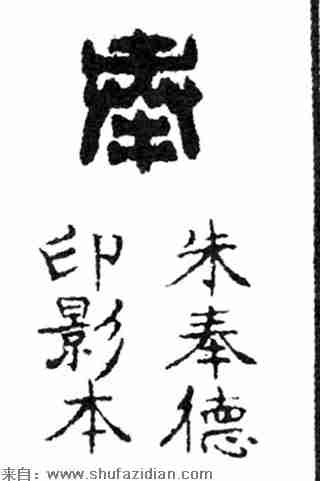 奉
朱奉德
印影本
来自：www.shufazidian.com